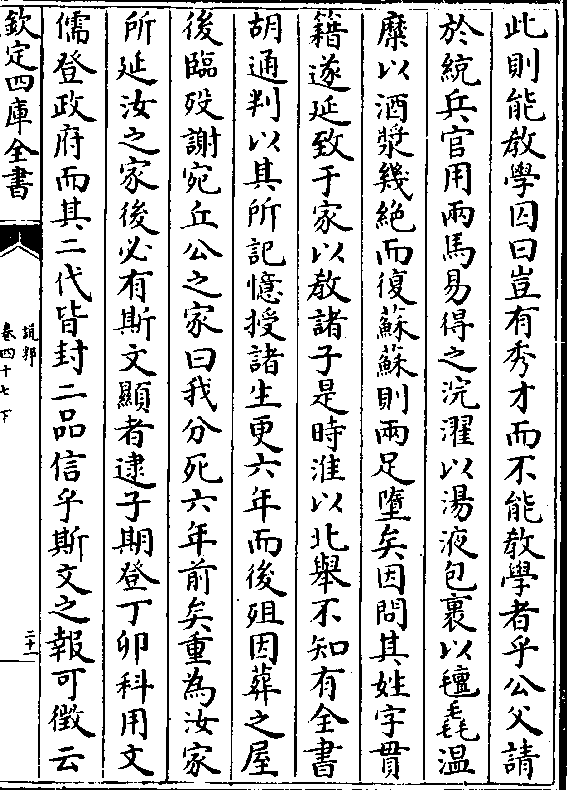 此則能教學囚曰豈有秀才而不能教學者乎公父請
於統兵官用兩馬易得之浣濯以湯液包裹以氊毳温
糜以酒漿幾絶而復蘇蘇則兩足墮矣因問其姓字貫
籍遂延致于家以教諸子是時淮以北舉不知有全書
胡通判以其所記憶授諸生更六年而後殂因葬之屋
後臨歿謝宛丘公之家曰我分死六年前矣重為汝家
所延汝之家後必有斯文顯者逮子期登丁卯科用文
儒登政府而其二代皆封二品信乎斯文之報可徵云
欽定四庫全書
說郛
卷四十七下
二十一